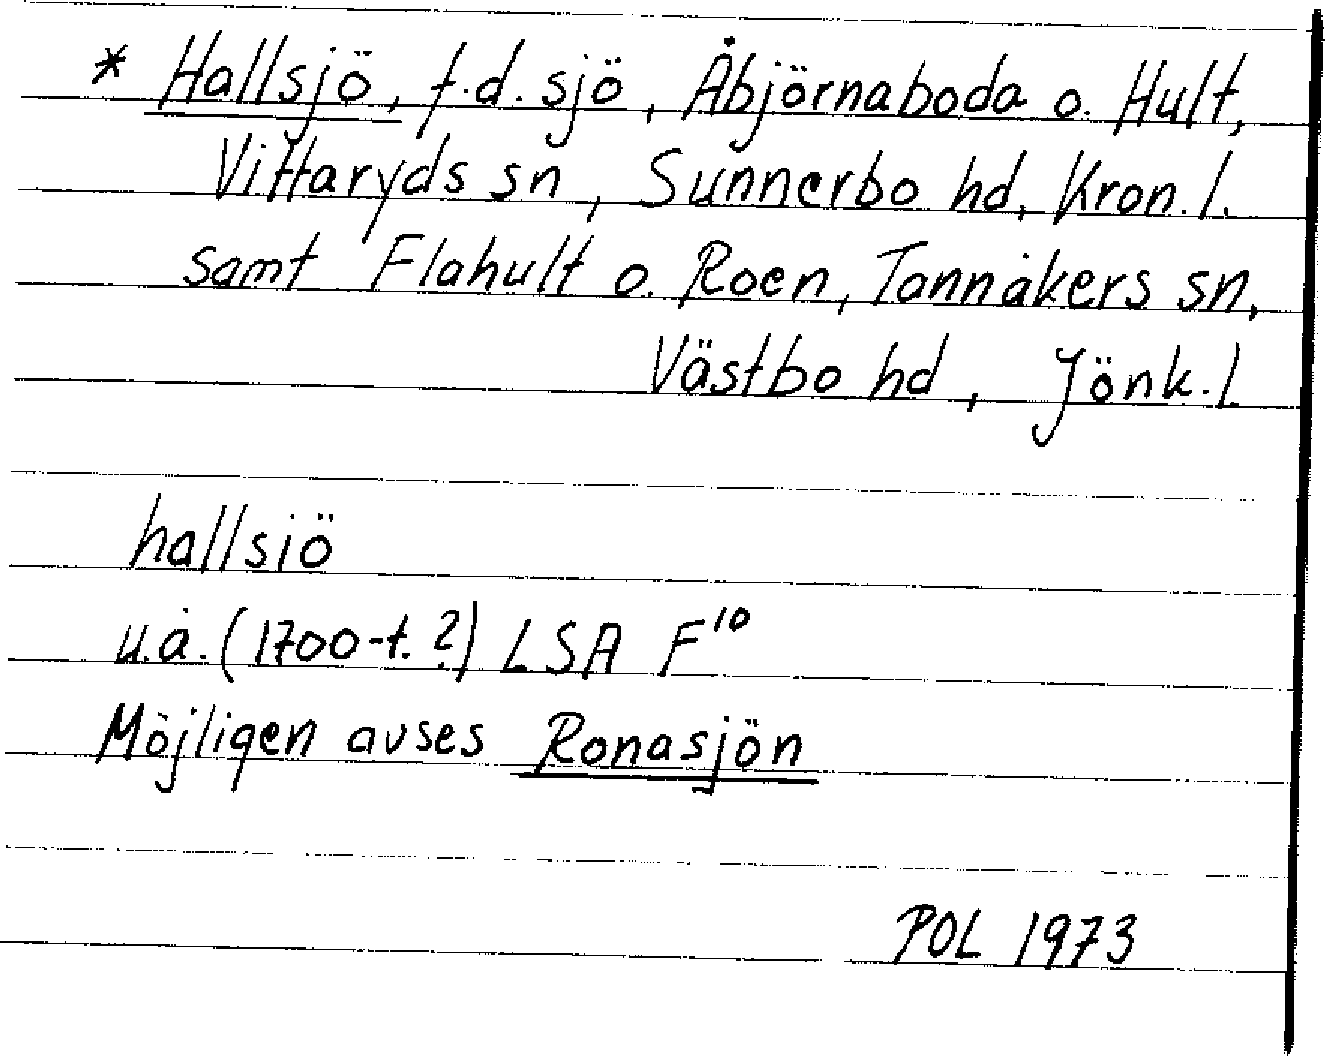 * Hallsjö, f.d. sjö, Åbjörnaboda o. Hult,
Vittaryds sn, Sunnerbo hd, Kron. l.
samt Flahult o. Roen, Tannåkers sn,
Västbo hd, Jönk. L
hallsiö
u.å. (1700-t. ?) LSA F¹⁰
Möjligen avses Ronasjön
POL 1973